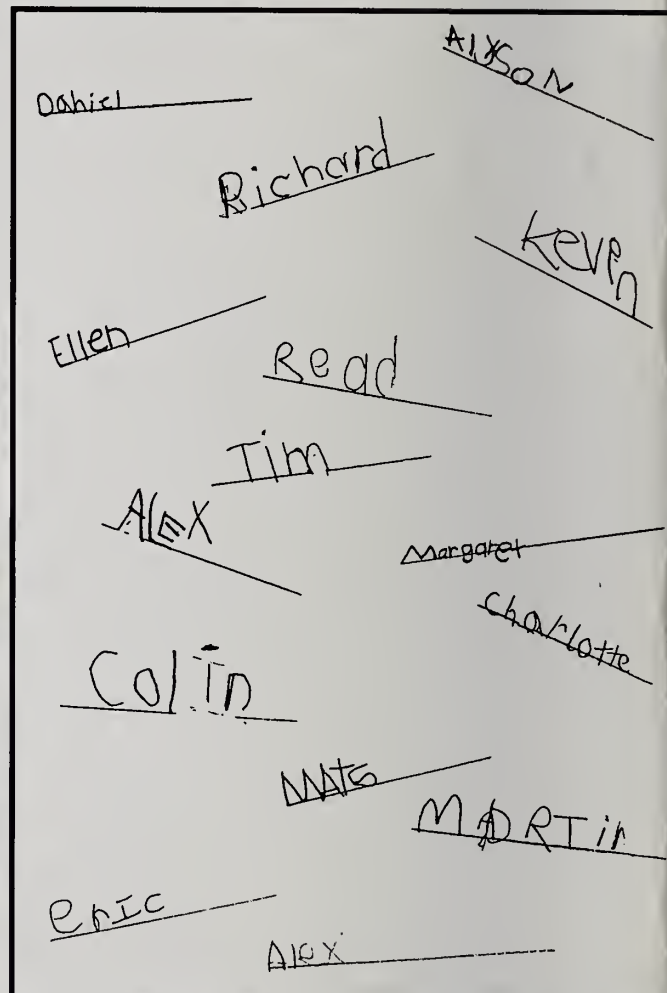 Alyson
Daniel
Richard
Kevin
Ellen
Read
Tim
AlEX
Margaret
Charlotte
ColIn
MAtS
MARTin
erIc
Alex